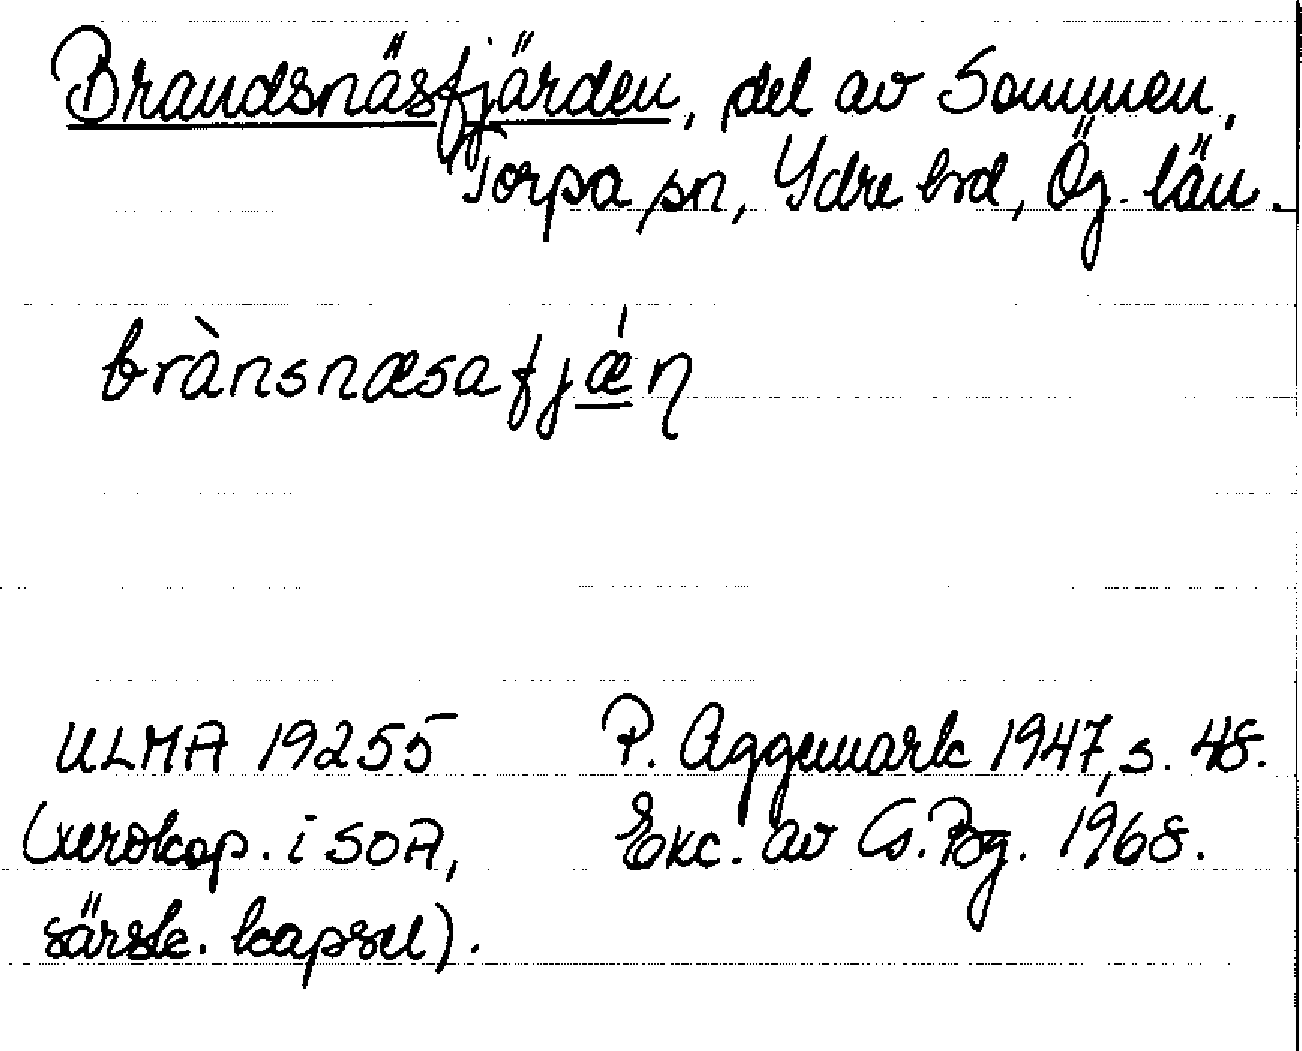 Brandsnäsfjärden, del av Sommen,
Torpa sn, Ydre hrd, Ög. län.
brànsnæsafjǽɳ
ULMA 19255 P. Aggemark 1947, s. 48.
(xerokop. i SOA, Exc. av G. Bg. 1968.
särsk. kapsel).